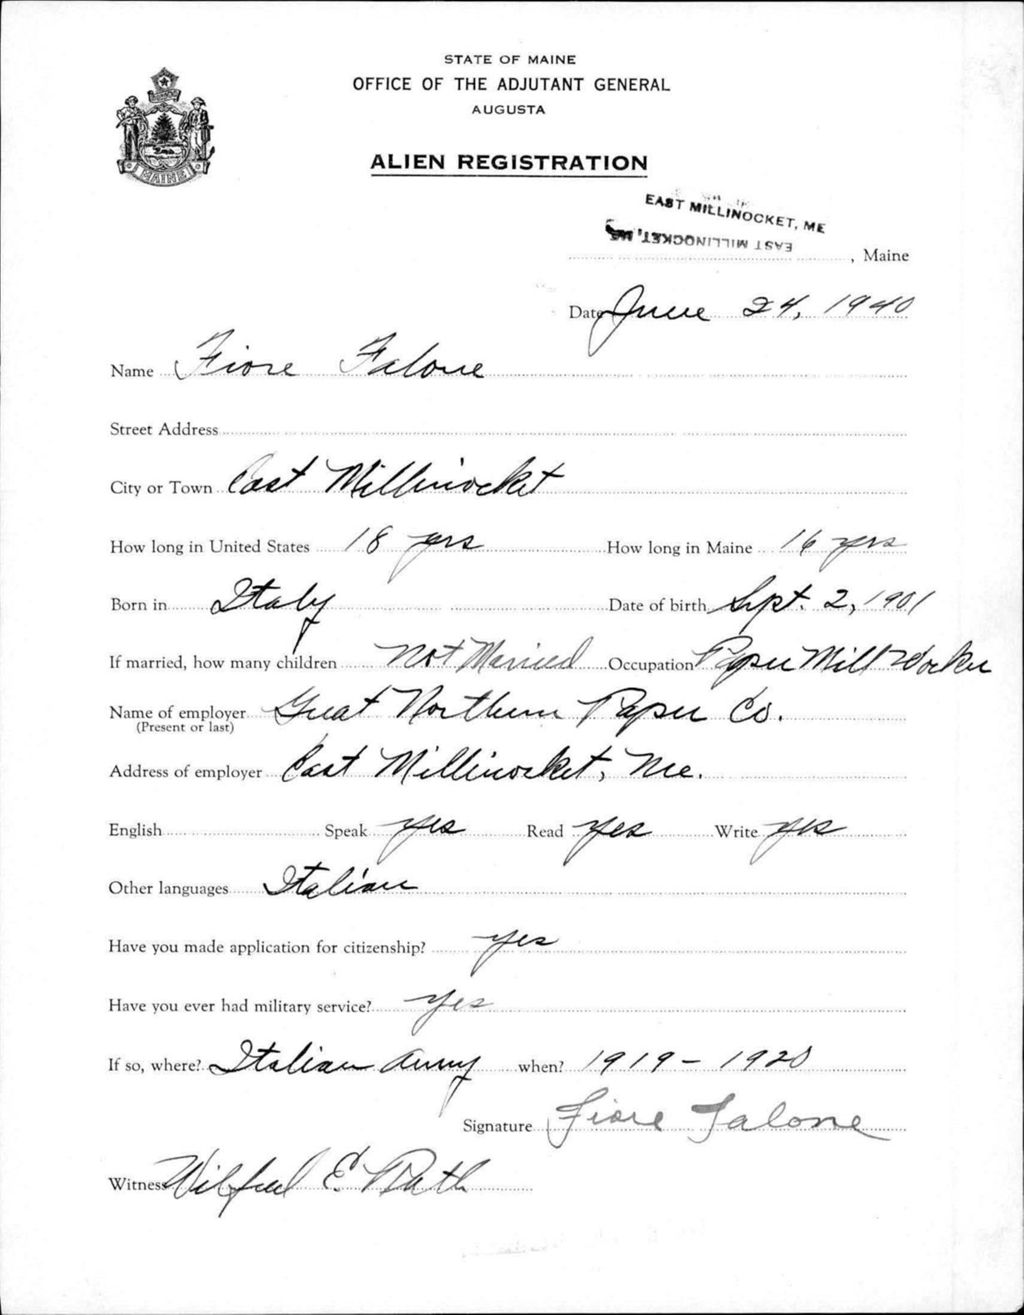 STATE OF MAINE
OFFICE OF THE ADJUTANT GENERAL
AUGUSTA
MAINE
ALIEN REGISTRATION
EAST MILLINOCKET, ME
EAST MILLINOCKET, ME
, Maine
Date June 24, 1940
Name Fiore Falone
Street Address
City or Town East Millinocket
How long in United States 18 yrs How long in Maine 16 yrs
Born in Italy Date of birth Sept. 2, 1901
If married, how many children Not Married Occupation Paper Mill Worker
Name of employer Great Northern Paper Co.
(Present or last)
Address of employer East Millinocket, Me.
English Speak yes Read yes Write yes
Other languages Italian
Have you made application for citizenship? yes
Have you ever had military service? yes
If so, where? Italian Army when? 1919-1920
Signature Fiore Falone
Witness Wilfred E.